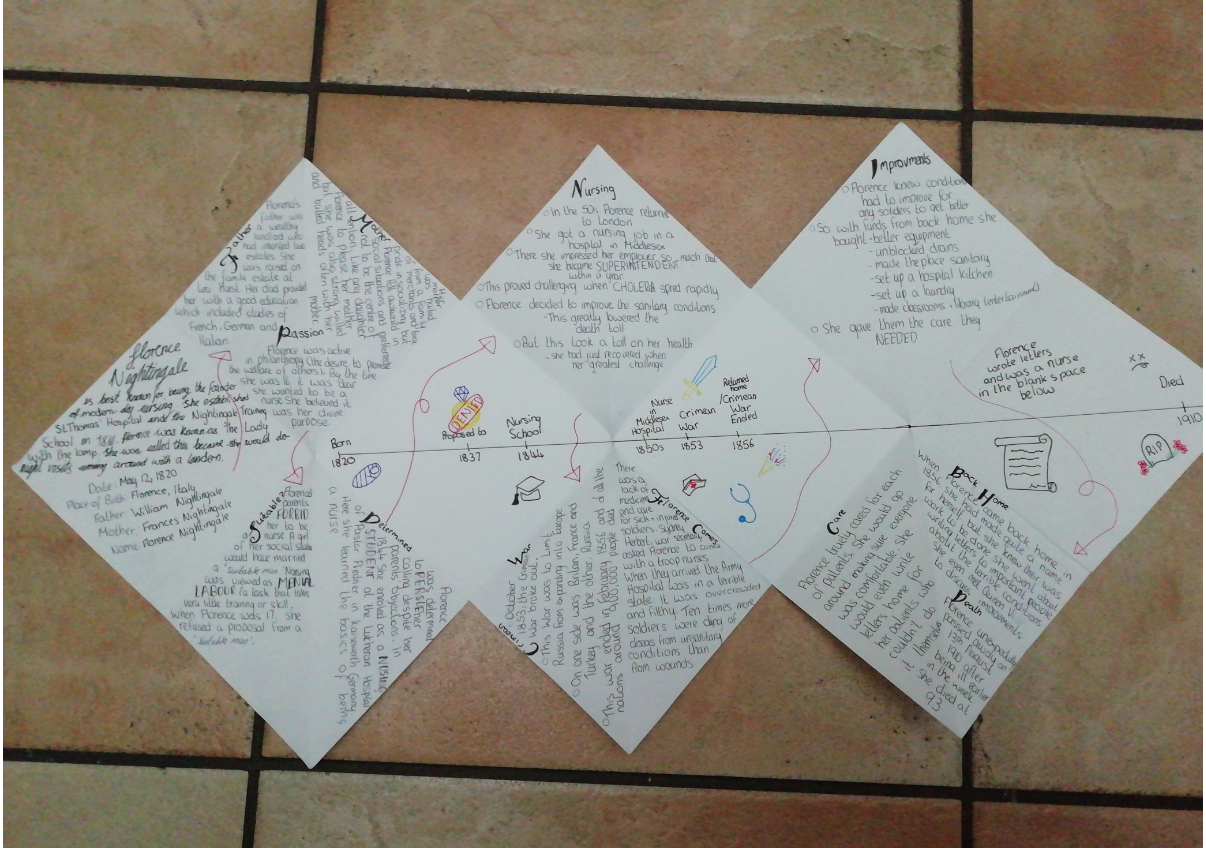 Florence
Nightingale
is best known for being the founder
of modern day nursing. She established
St.Thomas' Hospital and the Nightingale Training
School on Florence was known as The Lady
with the lamp. She was called this because she would do
night visits around with a
Date: May 12, 1820
Place of Birth: Florence, Italy
Father: William Nightingale
Mother: Frances Nightingale
Name: Florence Nightingale
Father
Florence's
father was
a wealthy
landlord who
had
estates. She
was raised on
the family estate at
Lea Hurst. Her dad provided
her with a good education
which included studies of
French, German and
Italian
Mother
Florence to please her mother
but she was also strong willed
and butted heads often with her
mother
Passion
Florence was active
in philanthropy (the desire to promote
the welfare of others). By the time
she was 16 it was clear
she wanted to be a
nurse. She believed it
was her divine
purpose.
Suitable?
Florences
parents
FORBID
her to be
a nurse. A girl
of her social
would have married
a 'suitable man'. Nursing
was viewed as MENIAL
LABOUR (a task that takes
very little training or skill.
When Florence was 17. She
refused a proposal from a
'suitable man'.
Determined
Florence
was determined
to PERSEVERE
calling despite her
parents objections in
1844. She enroled as a NURSING
STUDENT at the Lutheran Hospital
of Pastor Fliedner in Kaiserwerth Germany
Here she learned the basics of being
a nurse
Nursing
In the 50s Florence returned
to London
She got a nursing job in a
hospital in Middlesex
There she impressed her employer so much that
she became SUPERINTENDENT
within a year
This proved challenging when CHOLERA spred rapidly
Florence decided to improve the sanitary conditions
- This greatly lowered the
death toll
But this took a toll on her health
- she had just recovered when
her greatest challenge
Improvments
Florence knew conditions
had to improve for
any soliders to get better
So with funds from back home she
bought - better equipment
- unblocked drains
- made the place sanitary
- set up a hospital kitchen
- set up a laundry
- made classrooms + library (entertainment)
She gave them the care they
NEEDED
Florence
wrote letters
and was a nurse
in the blank space
below
Born
1820
Proposed to
1837
DENIED
Nursing
School
1844
Nurse
in
Middlesex
Hospital
1850s
Crimean
War
1853
Returned
home
/Crimean
War
Ended
1856
Died
1910
RIP
Crimean War
October
1853, the Crimean
War broke out.
This war was to limit
Russia from expanding into Europe
On one side was Britain, France and
Turkey and the other Russia.
This war ended February 1856 and all the
nations around people died
Florence Comes
There
was a
lack of
medicine
and care
for sick + injured
soldiers. Sydney
Herbet, war secretary
asked Florence to
with a troop nurses
When they arrived the Army
Hospital was in a terrible
state. It was overcrowded
and filthy. Ten times more
soldiers were dying of
dieses from unsanitary
conditions than
from wounds.
Care
Florence truely cared for each
of patients. She would go
around making sure everyone
was comfortable. She
would even write
letters home for
her patients who
couldn't do
it themselves
Back Home
When Florence came back home in
1856 she had made quite a name
for herself but she knew their was
work to be done. She went about
writing letters to important people
about the terrible conditions
she even met Queen
to discuss improvments.
Death
Florence unexpectedly
passed away on
13th August
1910 after
being ill earlier
in the week
She died at
93